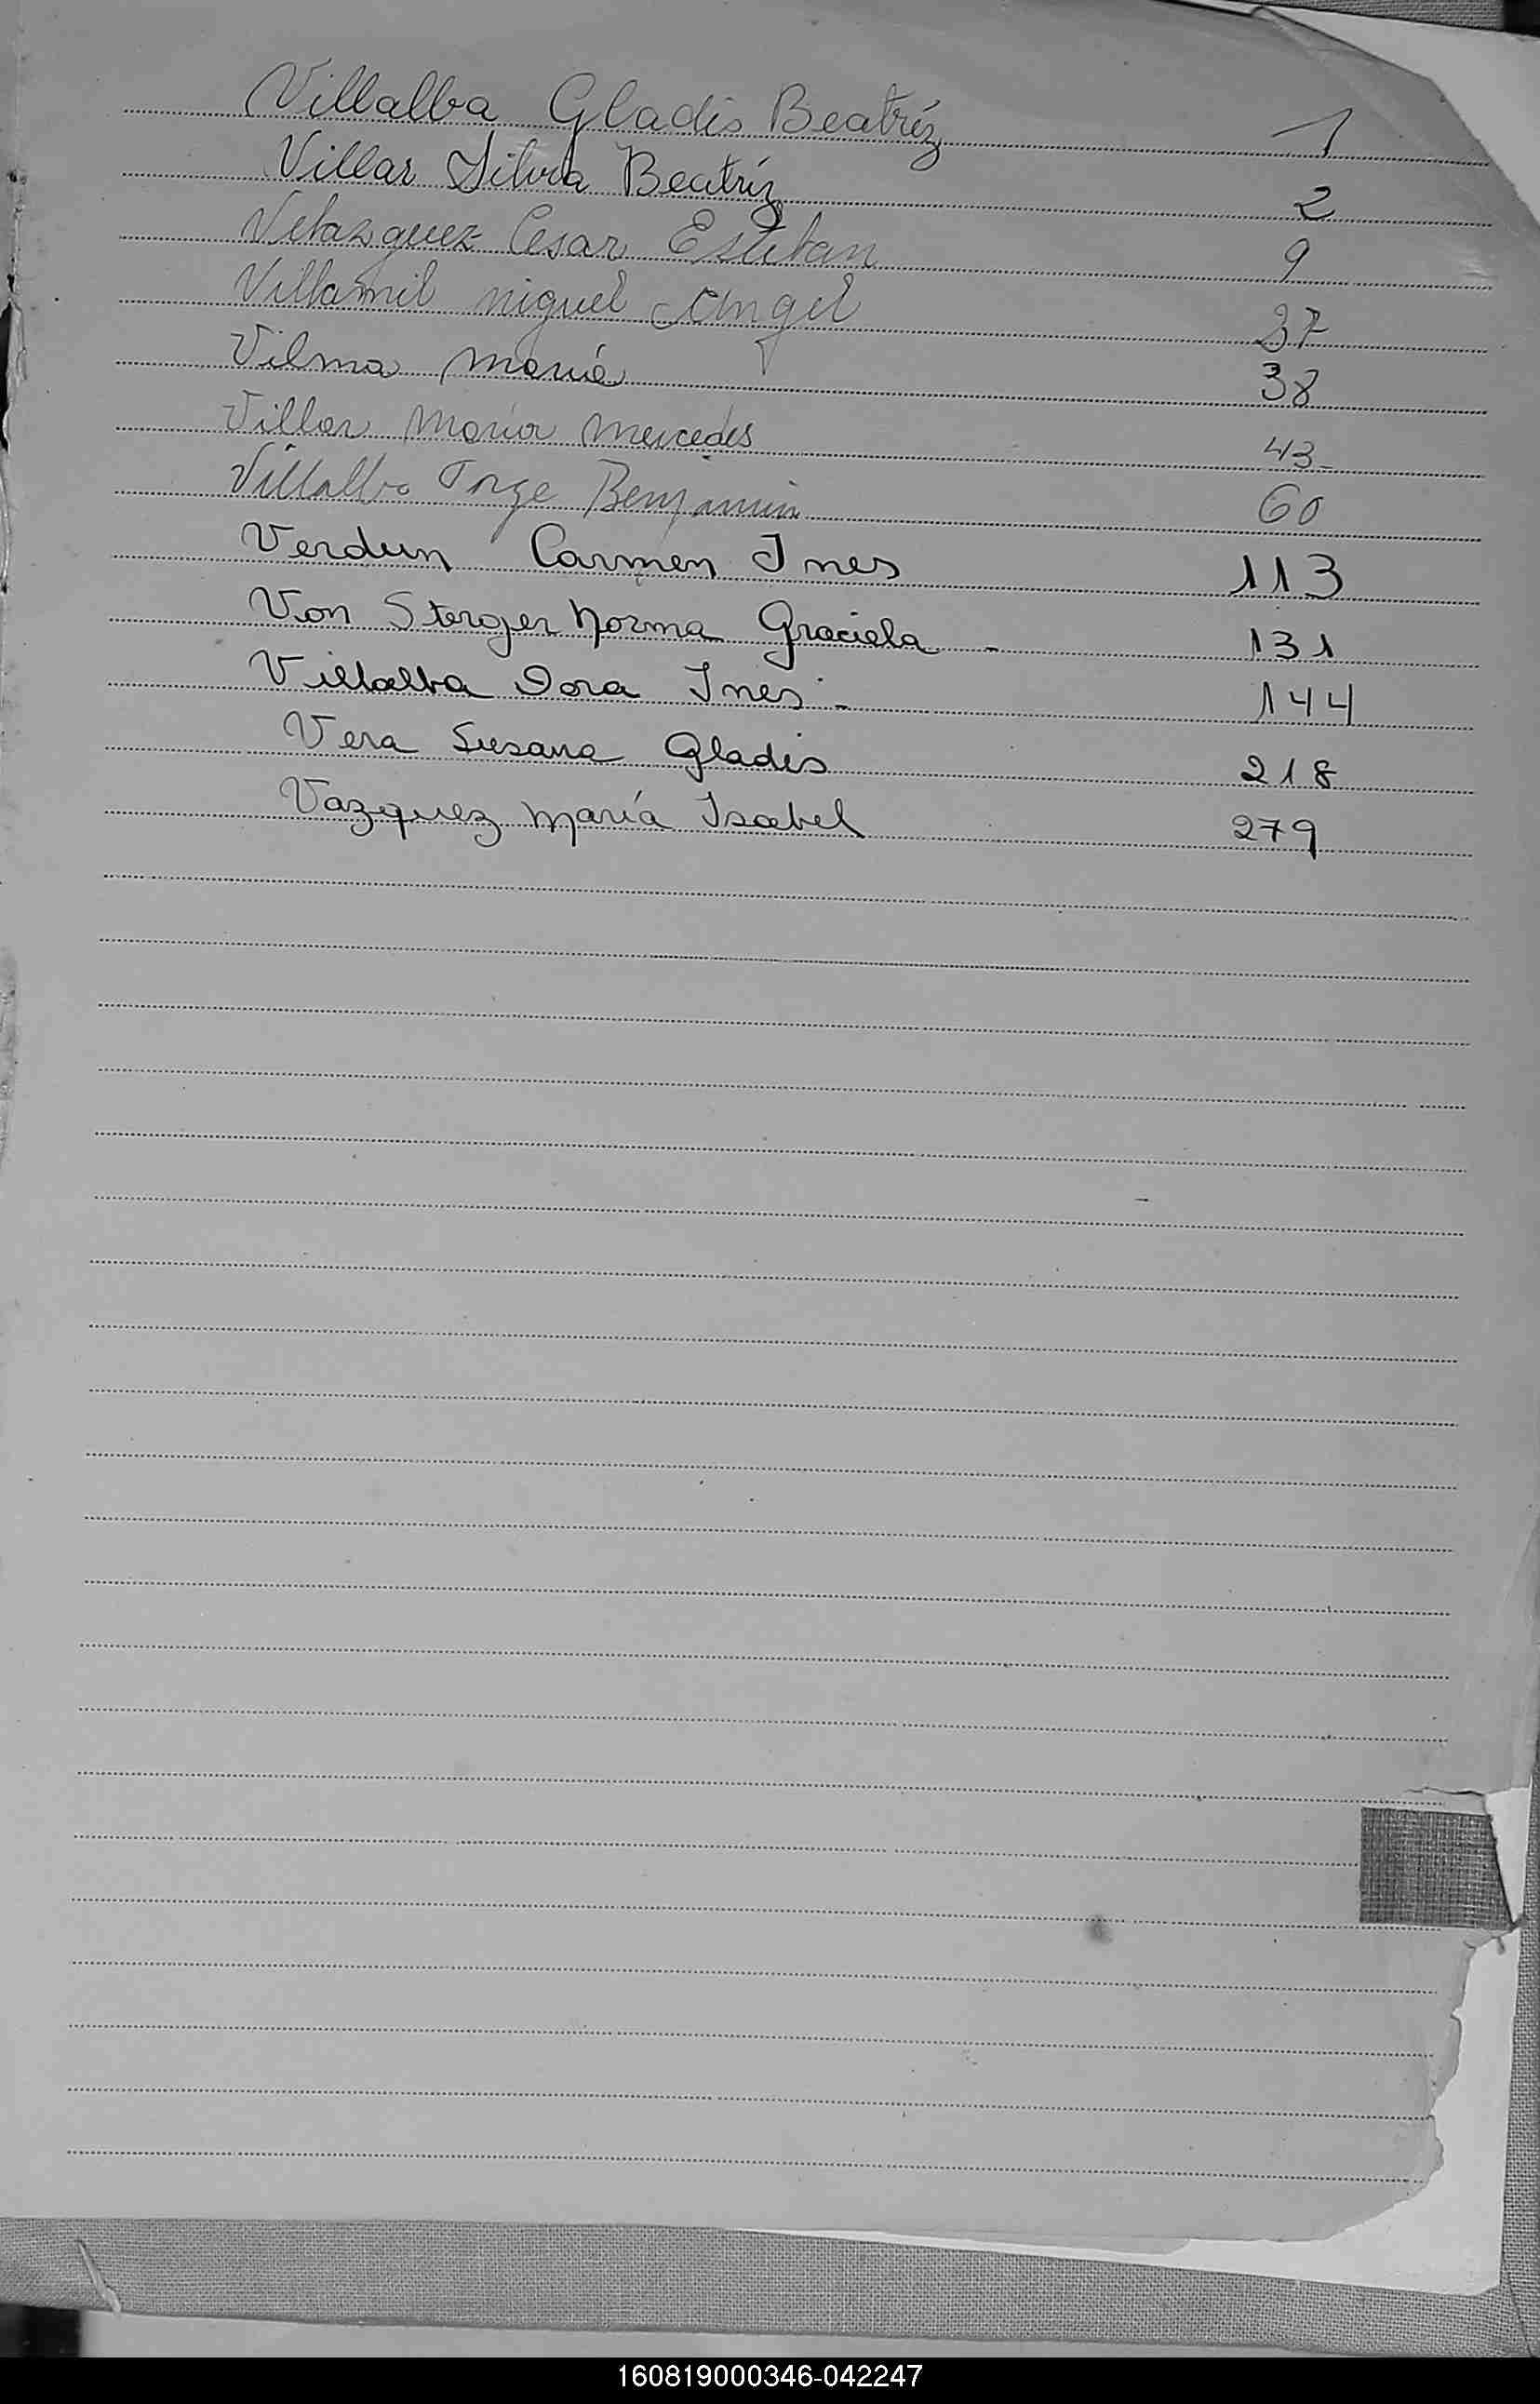 Villalba Gladis Beatríz 1
Villar Silvia Beatríz 2
Velazquez Cesar Esteban 9
Villamil Miguel Angel 37
Vilma María 38
Villar María Mercedes 43-
Villalba Jorge Benjamin 60
Verdun Carmen Ines 113
Von Sterger Norma Graciela - 131
Villalba Dora Ines - 144
Vera Susana Gladis 218
Vazquez María Isabel 279
160819000346-042247